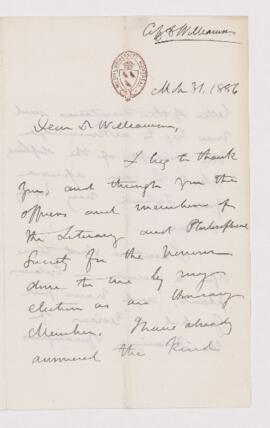 Williamson
31. 1886
Dear Dr Williamson,
I beg to thank
you, and through you the
officers and members of
the Literary and Philosophical
Society for the Honour
done to me by my
election as an Honorary
Member. I have already
answered the kind